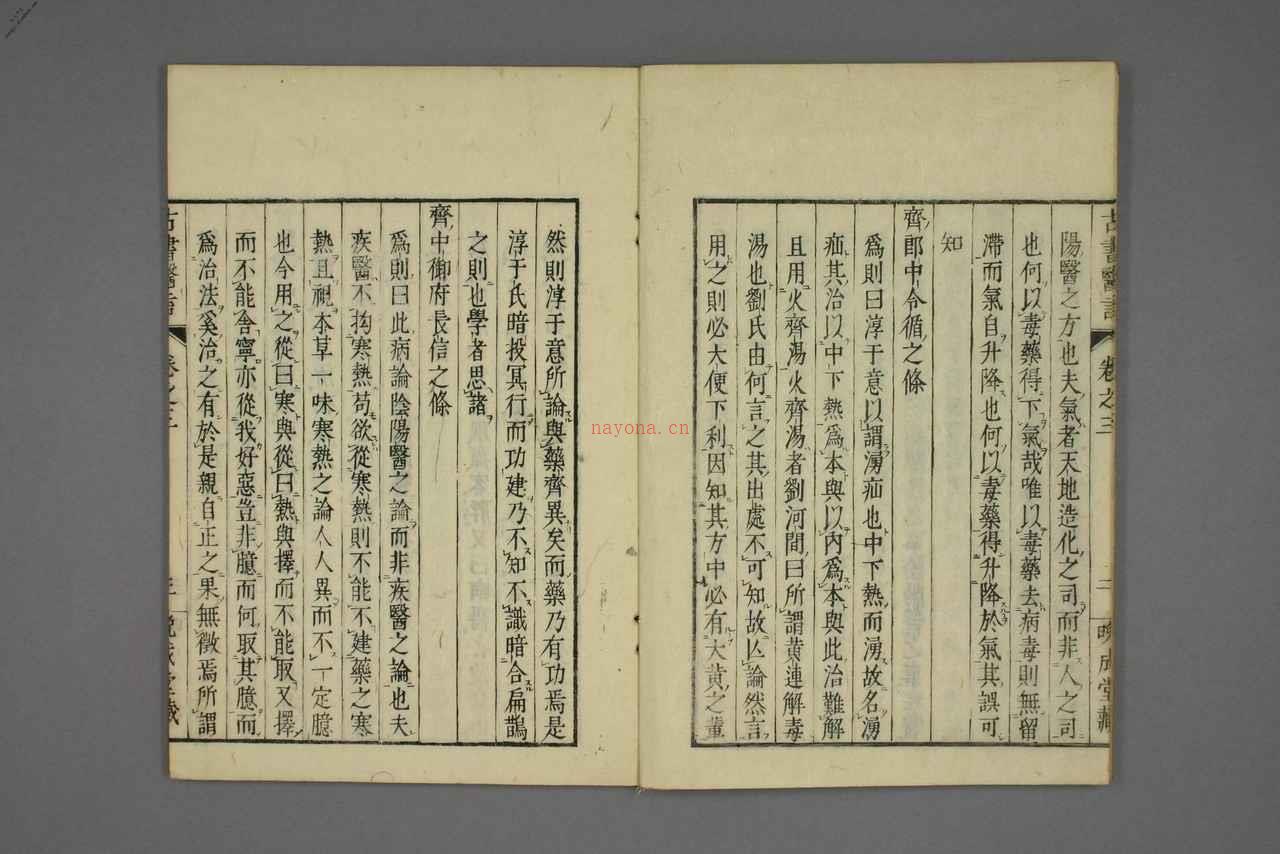 古書醫言 卷之三 二 晩成堂藏
陽醫之方也夫氣者天地造化之司而非人之司
也何以毒藥得下氣哉唯以毒藥去病毒則無留
滯而氣自升降也何以毒藥得升降於氣其誤可
知
齊郎中令循之條
爲則曰淳于意以謂湧疝也中下熱而湧故名湧
疝其治以中下熱爲本與以內爲本與此治難解
且用火齊湯火齊湯者劉河間曰所謂黄連解毒
湯也劉氏由何言之其出處不可知故亾論然言
用之則必大便下利因知其方中必有大黄之輩
然則淳于意所論與藥齊異矣而藥乃有功焉是
淳于氏暗投冥行而功建乃不知不識暗合扁鵲
之則也學者思諸
齊中御府長信之條
爲則曰此病論陰陽醫之論而非疾醫之論也夫
疾醫不拘寒熱苟欲從寒熱則不能不建藥之寒
熱且視本草一味寒熱之論人人異而不一定臆
也今用之從曰寒與從曰熱與擇而不能取又擇
而不能舍寧亦從我好惡豈非臆而何取其臆而
爲治法奚治之有於是親自正之果無徵焉所謂
古書醫言 卷之三 三 晩成堂藏
nayona.cn